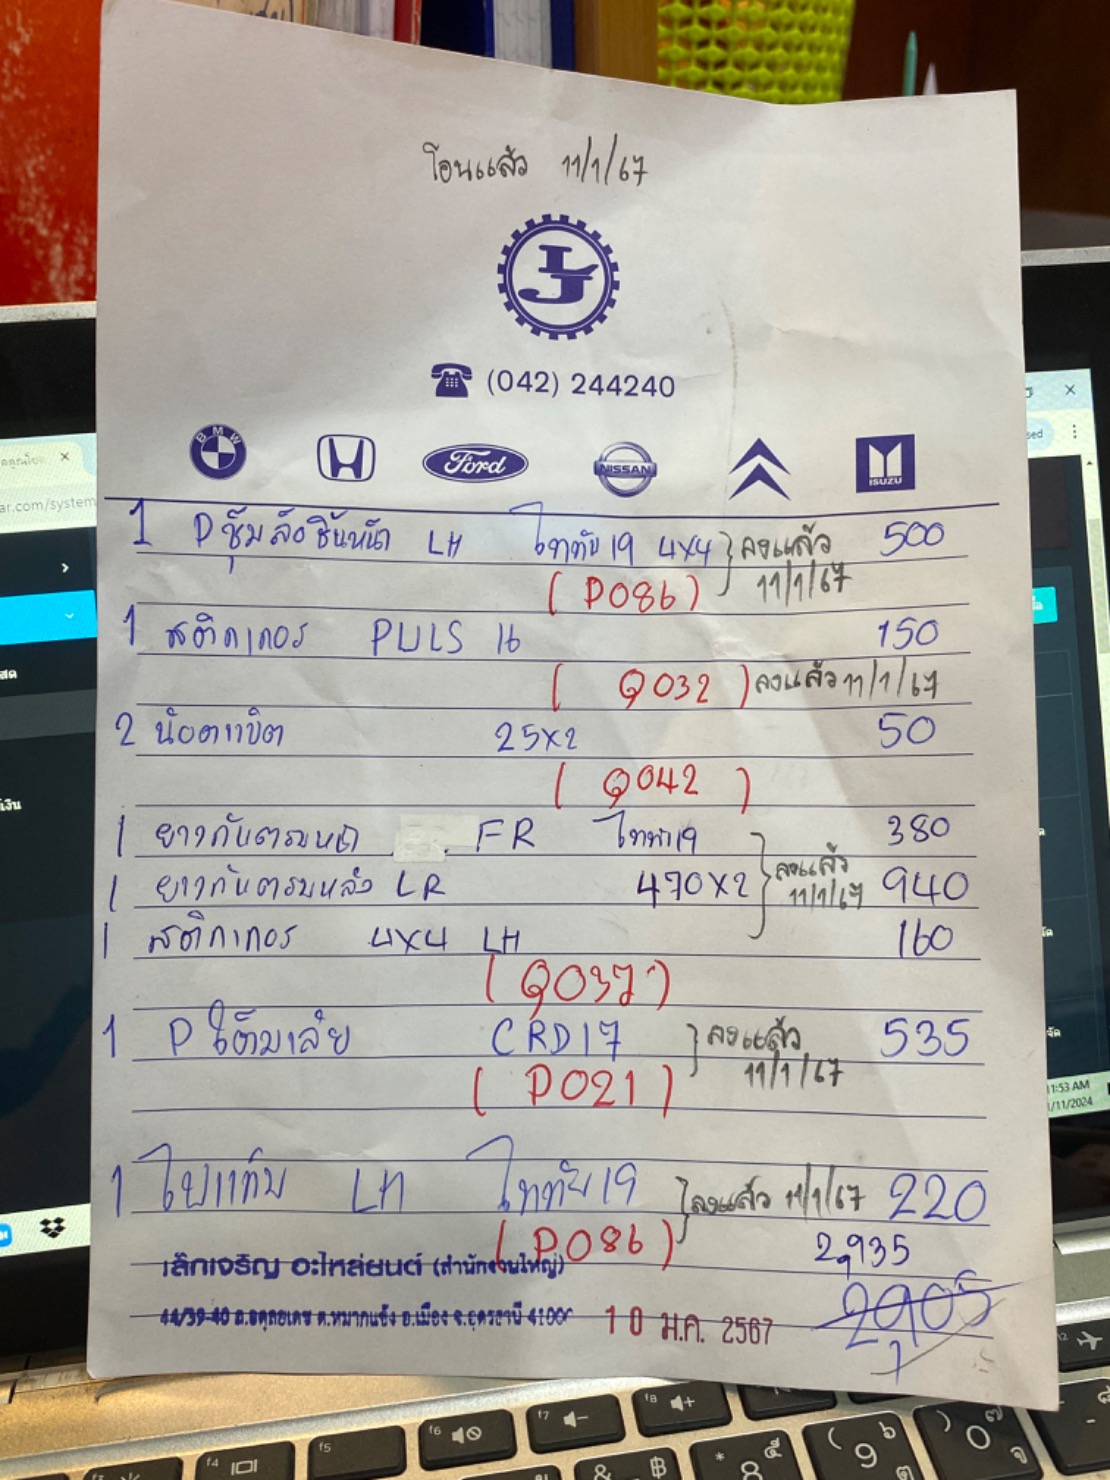 โอนแล้ว 11/1/67
(042) 244240
BMW Ford NISSAN ISUZU
1 Pซุ้มล้อชิ้นหน้า LH ไททัน19 4x4 ลงแล้ว 500
(P086) 11/1/67
1 สติกเกอร์ PULS 16 150
(Q032) ลงแล้ว 11/1/67
2 น๊อตเบิต 25x2 50
(Q042)
1 ยางกันตรบหน้า FR ไททัน19 380
1 ยางกันตรบหลัง LR 470x2 ลงแล้ว 11/1/67 940
1 สติกเกอร์ 4x4 LH 160
(Q037)
1 P CRD17 ลงแล้ว 535
(P021) 11/1/67
1 LH ไททัน19 ลงแล้ว 11/1/67 220
(P086) 2,935
เล็กเจริญ อะไหล่ยนต์ (สำนักงานใหญ่)
2,905
44/39-40 ถ.อดุลยเดช ต.หมากแข้ง อ.เมือง จ.อุดรธานี 41000 10 ม.ค. 2567
ar.com/system
11:53 AM
/11/2024
f4 f5 f6 f7 f8